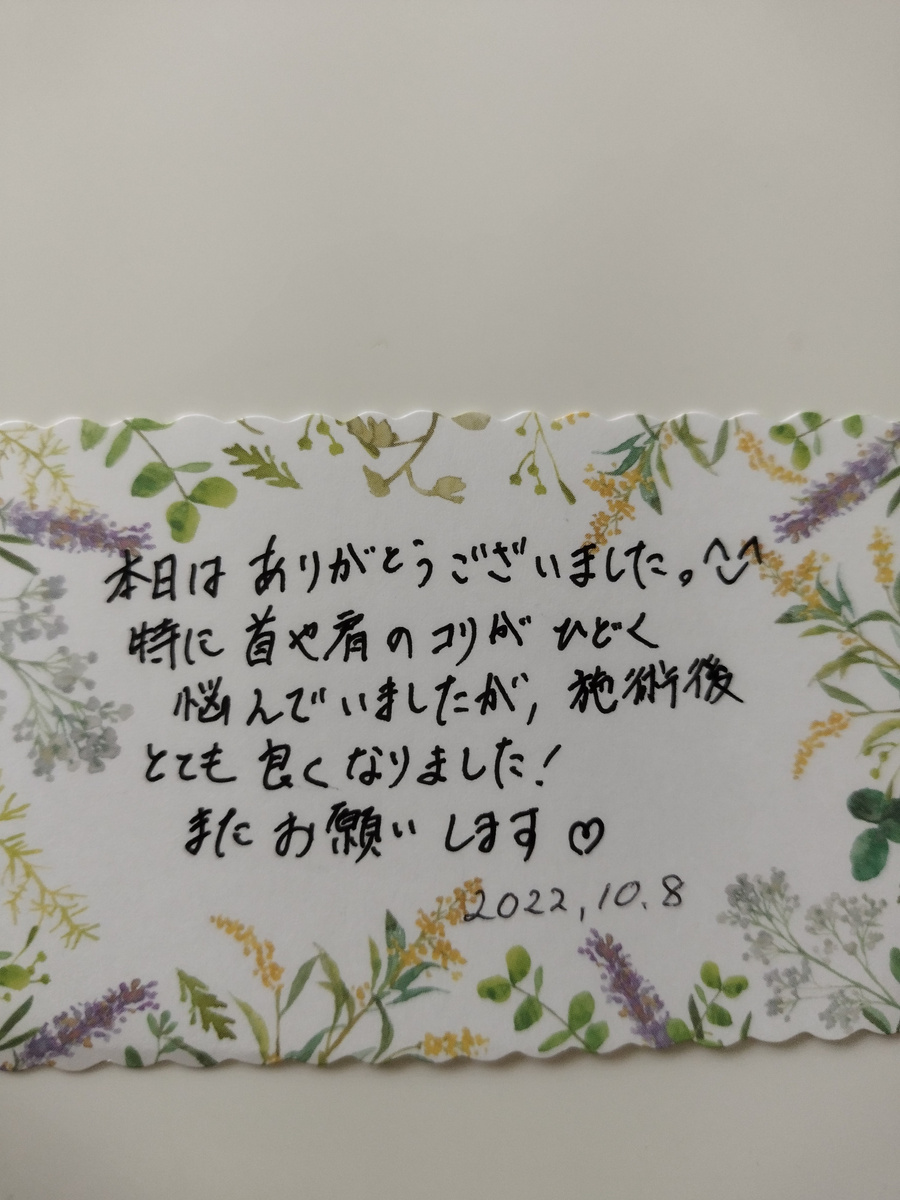 本日は ありがとうございました。^⌣^
特に 首や肩の コリが ひどく
悩んでいましたが, 施術後
とても 良くなりました!
また お願い します♡
2022.10.8